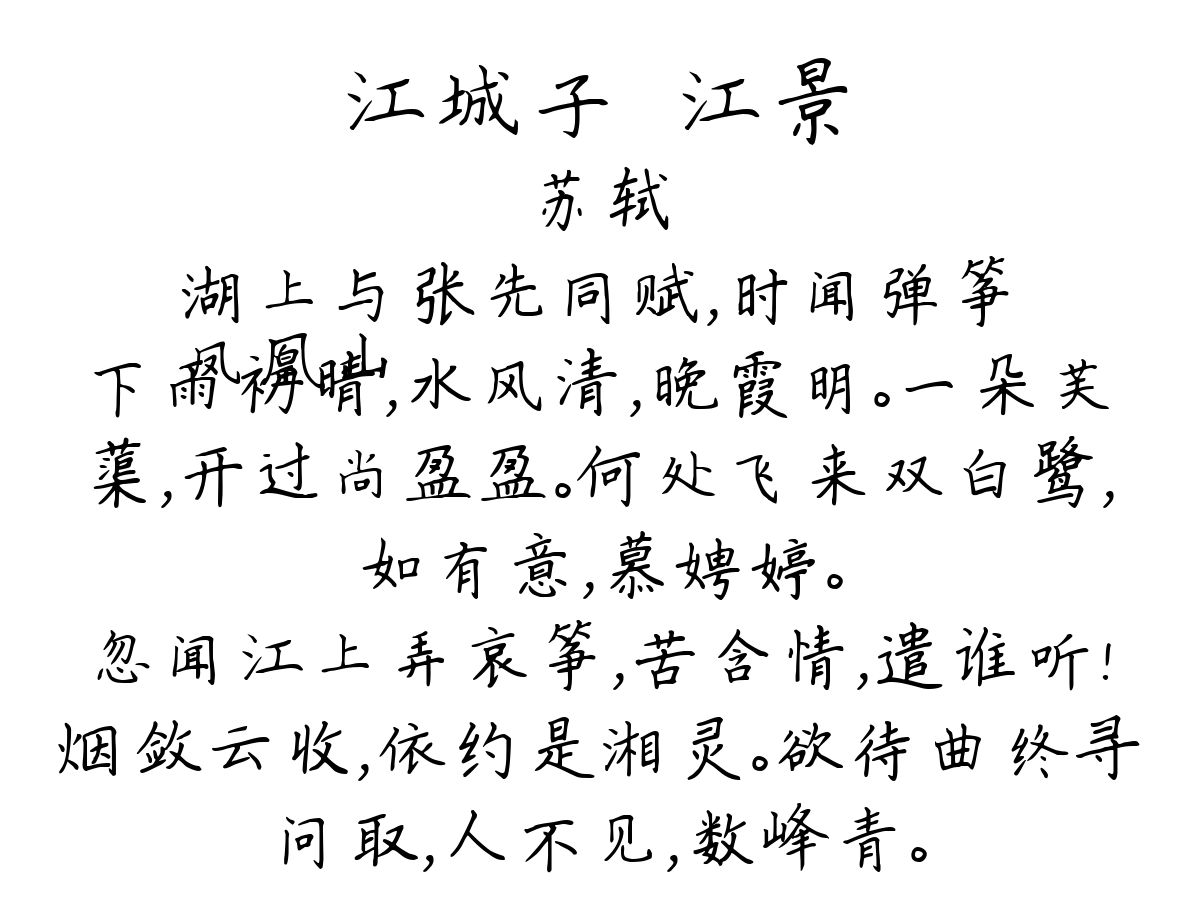 江城子 江景
苏轼
湖上与张先同赋,时闻弹筝
凤凰山
下雨初晴,水风清,晚霞明。一朵芙
蕖,开过尚盈盈。何处飞来双白鹭,
如有意,慕娉婷。
忽闻江上弄哀筝,苦含情,遣谁听!
烟敛云收,依约是湘灵。欲待曲终寻
问取,人不见,数峰青。